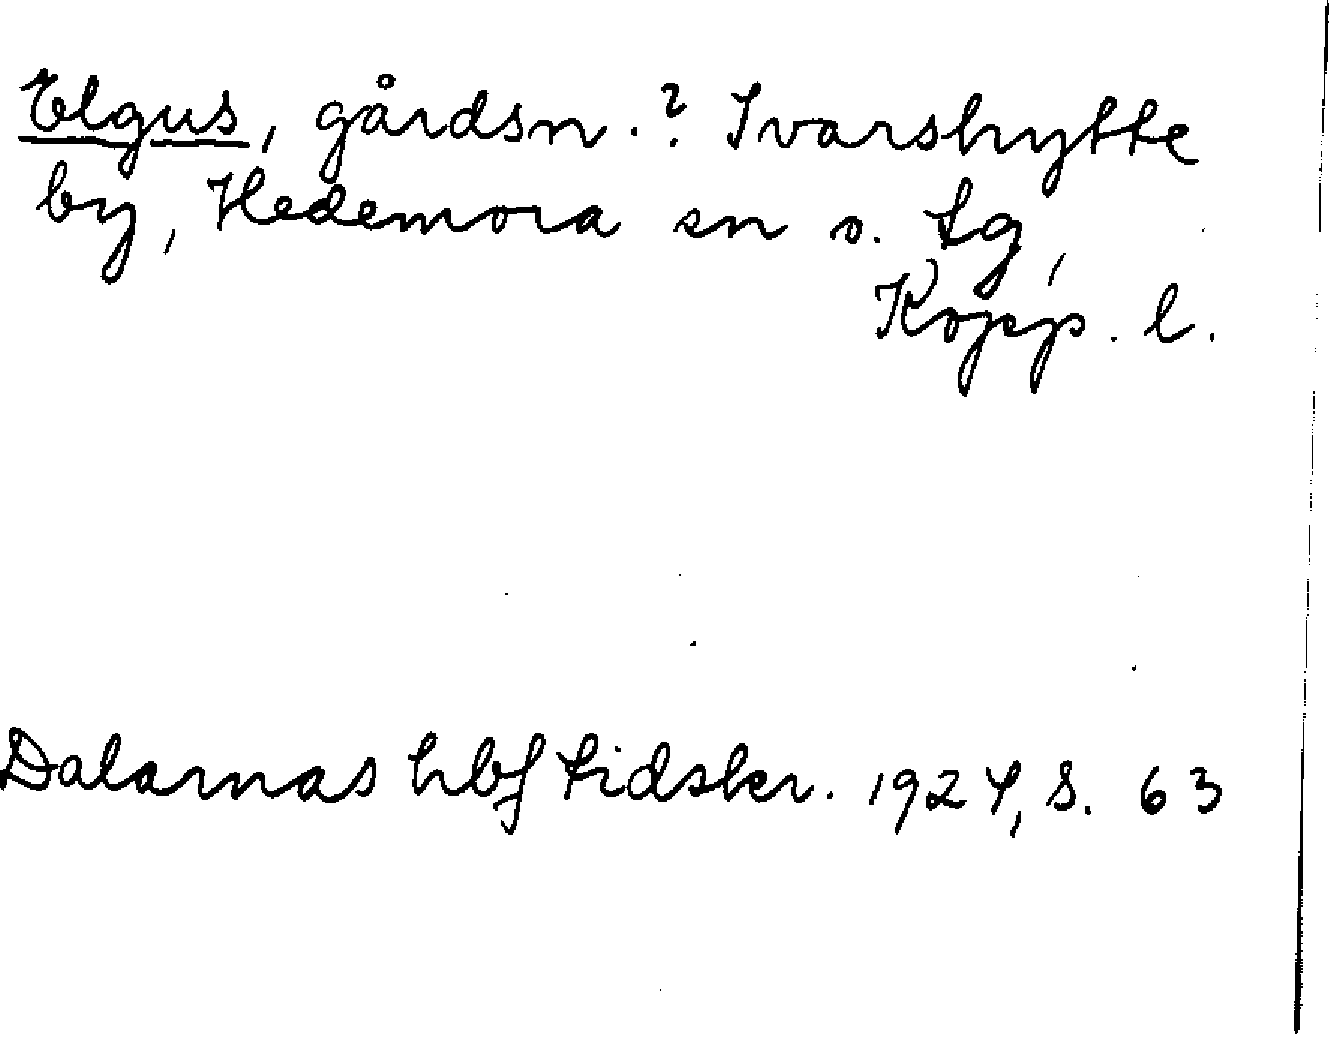 Elgus, gårdsn.? Ivarshytte
by, Hedemora sn o. tg,
Kopp. l.
Dalarnas hbf tidskr. 1924, s. 63